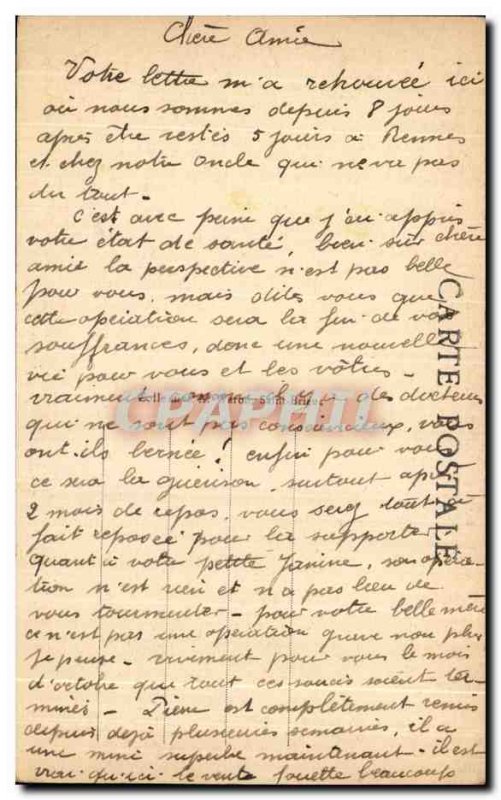 Chère Amie
Votre lettre m'a retrouvée ici
où nous sommes depuis 8 jours
après être restés 5 jours à Rennes
et chez notre oncle qui ne va pas
du tout -
C'est avec peine que j'ai appris
votre état de santé, bien sûr chère
amie la perspective n'est pas belle
pour vous, mais dites vous que
cette opération sera la fin de vos
souffrances, donc une nouvelle
vie pour vous et les vôtres -
vraiment des docteurs
qui ne sont pas consciencieux, vous
ont-ils bernée ! enfin pour vous
ce sera la guérison, surtout après
2 mois de repos, vous serez tout à
fait reposée pour la supporter
quant à votre petite Janine, son opéra-
tion n'est rien et n'a pas lieu de
vous tourmenter - pour votre belle mère
ce n'est pas une opération grave non plus
je pense - vivement pour vous le mois
d'octobre que tout ces soucis soient ter-
minés - Pierre est complètement remis
depuis déjà plusieurs semaines, il a
une mine superbe maintenant - il est
vrai qu'ici le vent fouette beaucoup
CARTE POSTALE
CPAPHIL.com